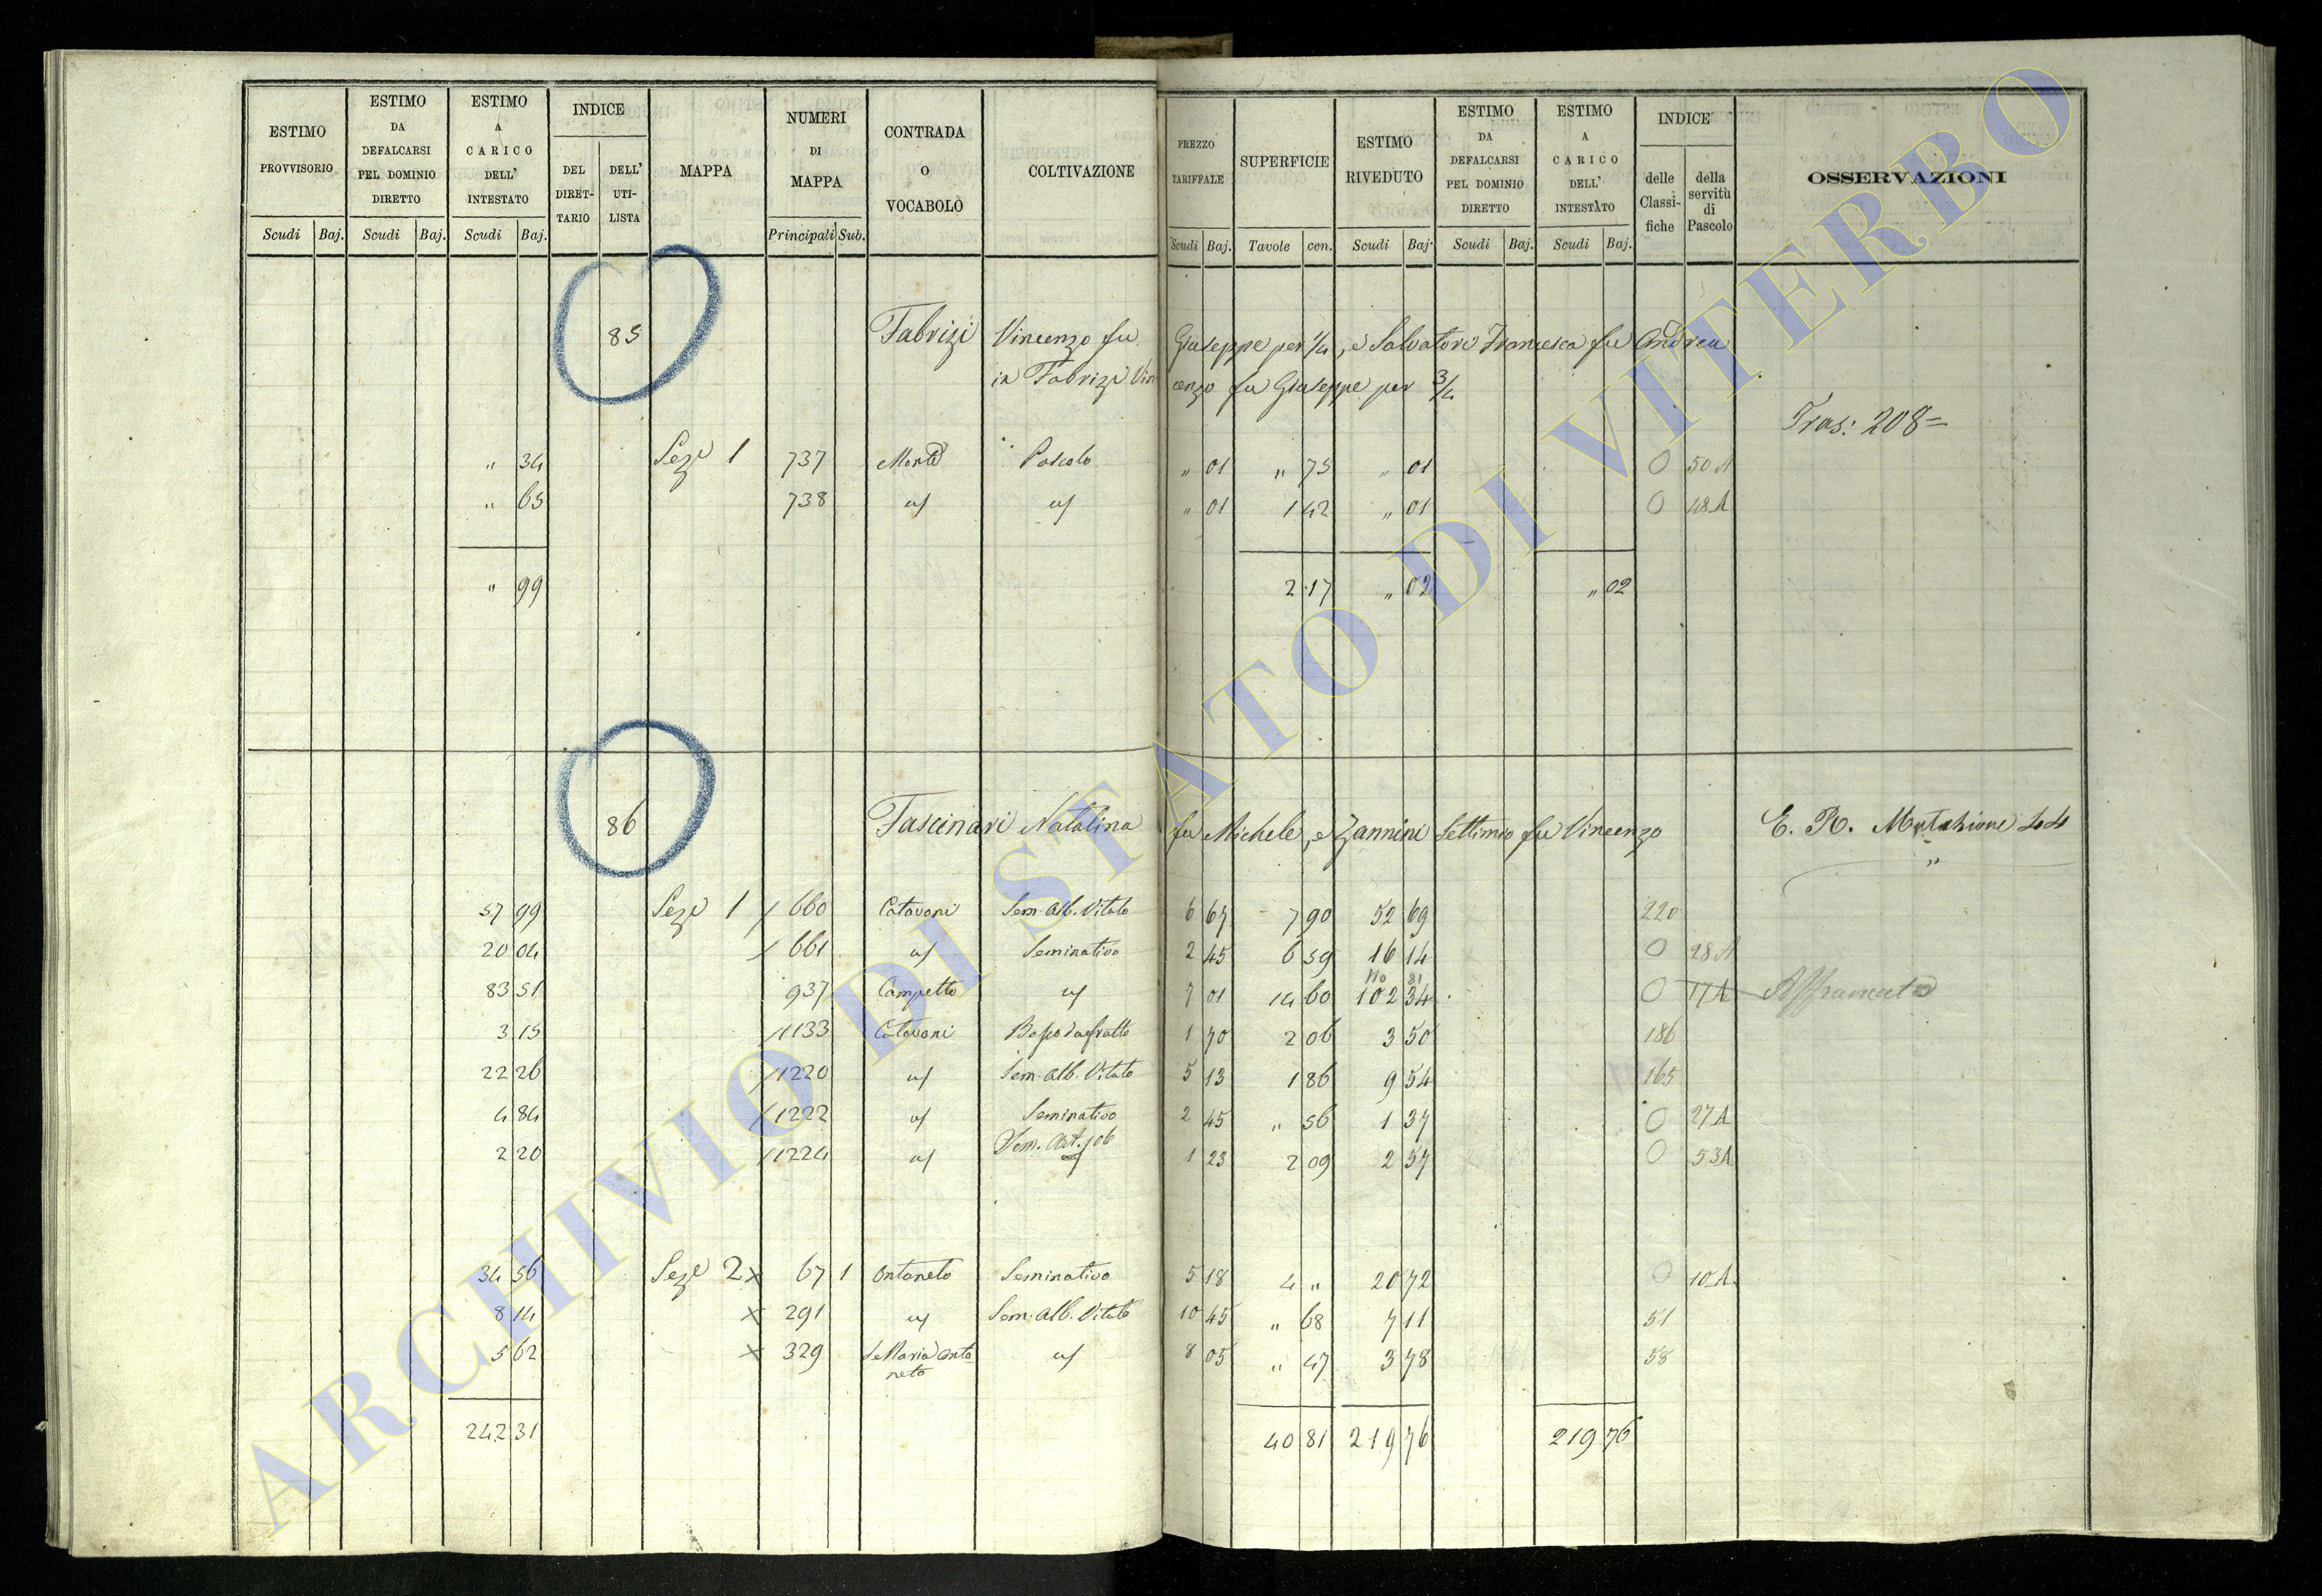 ESTIMO PROVVISORIO
ESTIMO DA DEFALCARSI PEL DOMINIO DIRETTO
ESTIMO A CARICO DELL' INTESTATO
INDICE
DEL DIRET-TARIO
DELL' UTI-LISTA
MAPPA
NUMERI DI MAPPA
CONTRADA O VOCABOLO
COLTIVAZIONE
PREZZO TARIFFALE
SUPERFICIE
ESTIMO RIVEDUTO
ESTIMO DA DEFALCARSI PEL DOMINIO DIRETTO
ESTIMO A CARICO DELL' INTESTATO
INDICE
delle Classi-fiche
della servitù di Pascolo
OSSERVAZIONI
Scudi Baj. Scudi Baj. Scudi Baj. Principali Sub. Scudi Baj. Tavole cen. Scudi Baj. Scudi Baj. Scudi Baj.
85 Fabrizi Vincenzo fu Giuseppe per 1/4, e Salvatori Francesca fu Andrea
in Fabrizi Vincenzo fu Giuseppe per 3/4
Tras: 208=
" 34 Seze 1 737 Monte Pascolo " 01 " 75 " 01 0 50 A
" 65 738 " 01 1 42 " 01 0 48 A
" 99 2 17 " 02 " 02
86 Fascinari Natalina fu Michele, e Zannini Settimio fu Vincenzo E. R. Mutazione 44
"
57 99 Seze 1 660 Catavoni Sem. Alb. Vitato 6 67 7 90 52 69 220
20 04 661 Seminativo 2 45 6 59 16 14 0 28 A
110 81
83 51 937 Campetto 7 01 14 60 102 34 0 17 A Affrancato
3 15 1133 Catavoni 1 70 2 06 3 50 186
22 26 1220 Sem. Alb. Vitato 5 13 1 86 9 54 165
4 84 1222 Seminativo 2 45 " 56 1 37 0 27 A
2 20 1224 1 23 2 09 2 57 0 53 A
34 56 Seze 2 x 67 1 Ontaneto Seminativo 5 18 4 " 20 72 0 10 A
8 14 x 291 Sem. Alb. Vitato 10 45 " 68 7 11 51
5 62 x 329 S. Maria Ontaneto 8 05 " 47 3 78 58
242 31 40 81 219 76 219 76
ARCHIVIO DI STATO DI VITERBO